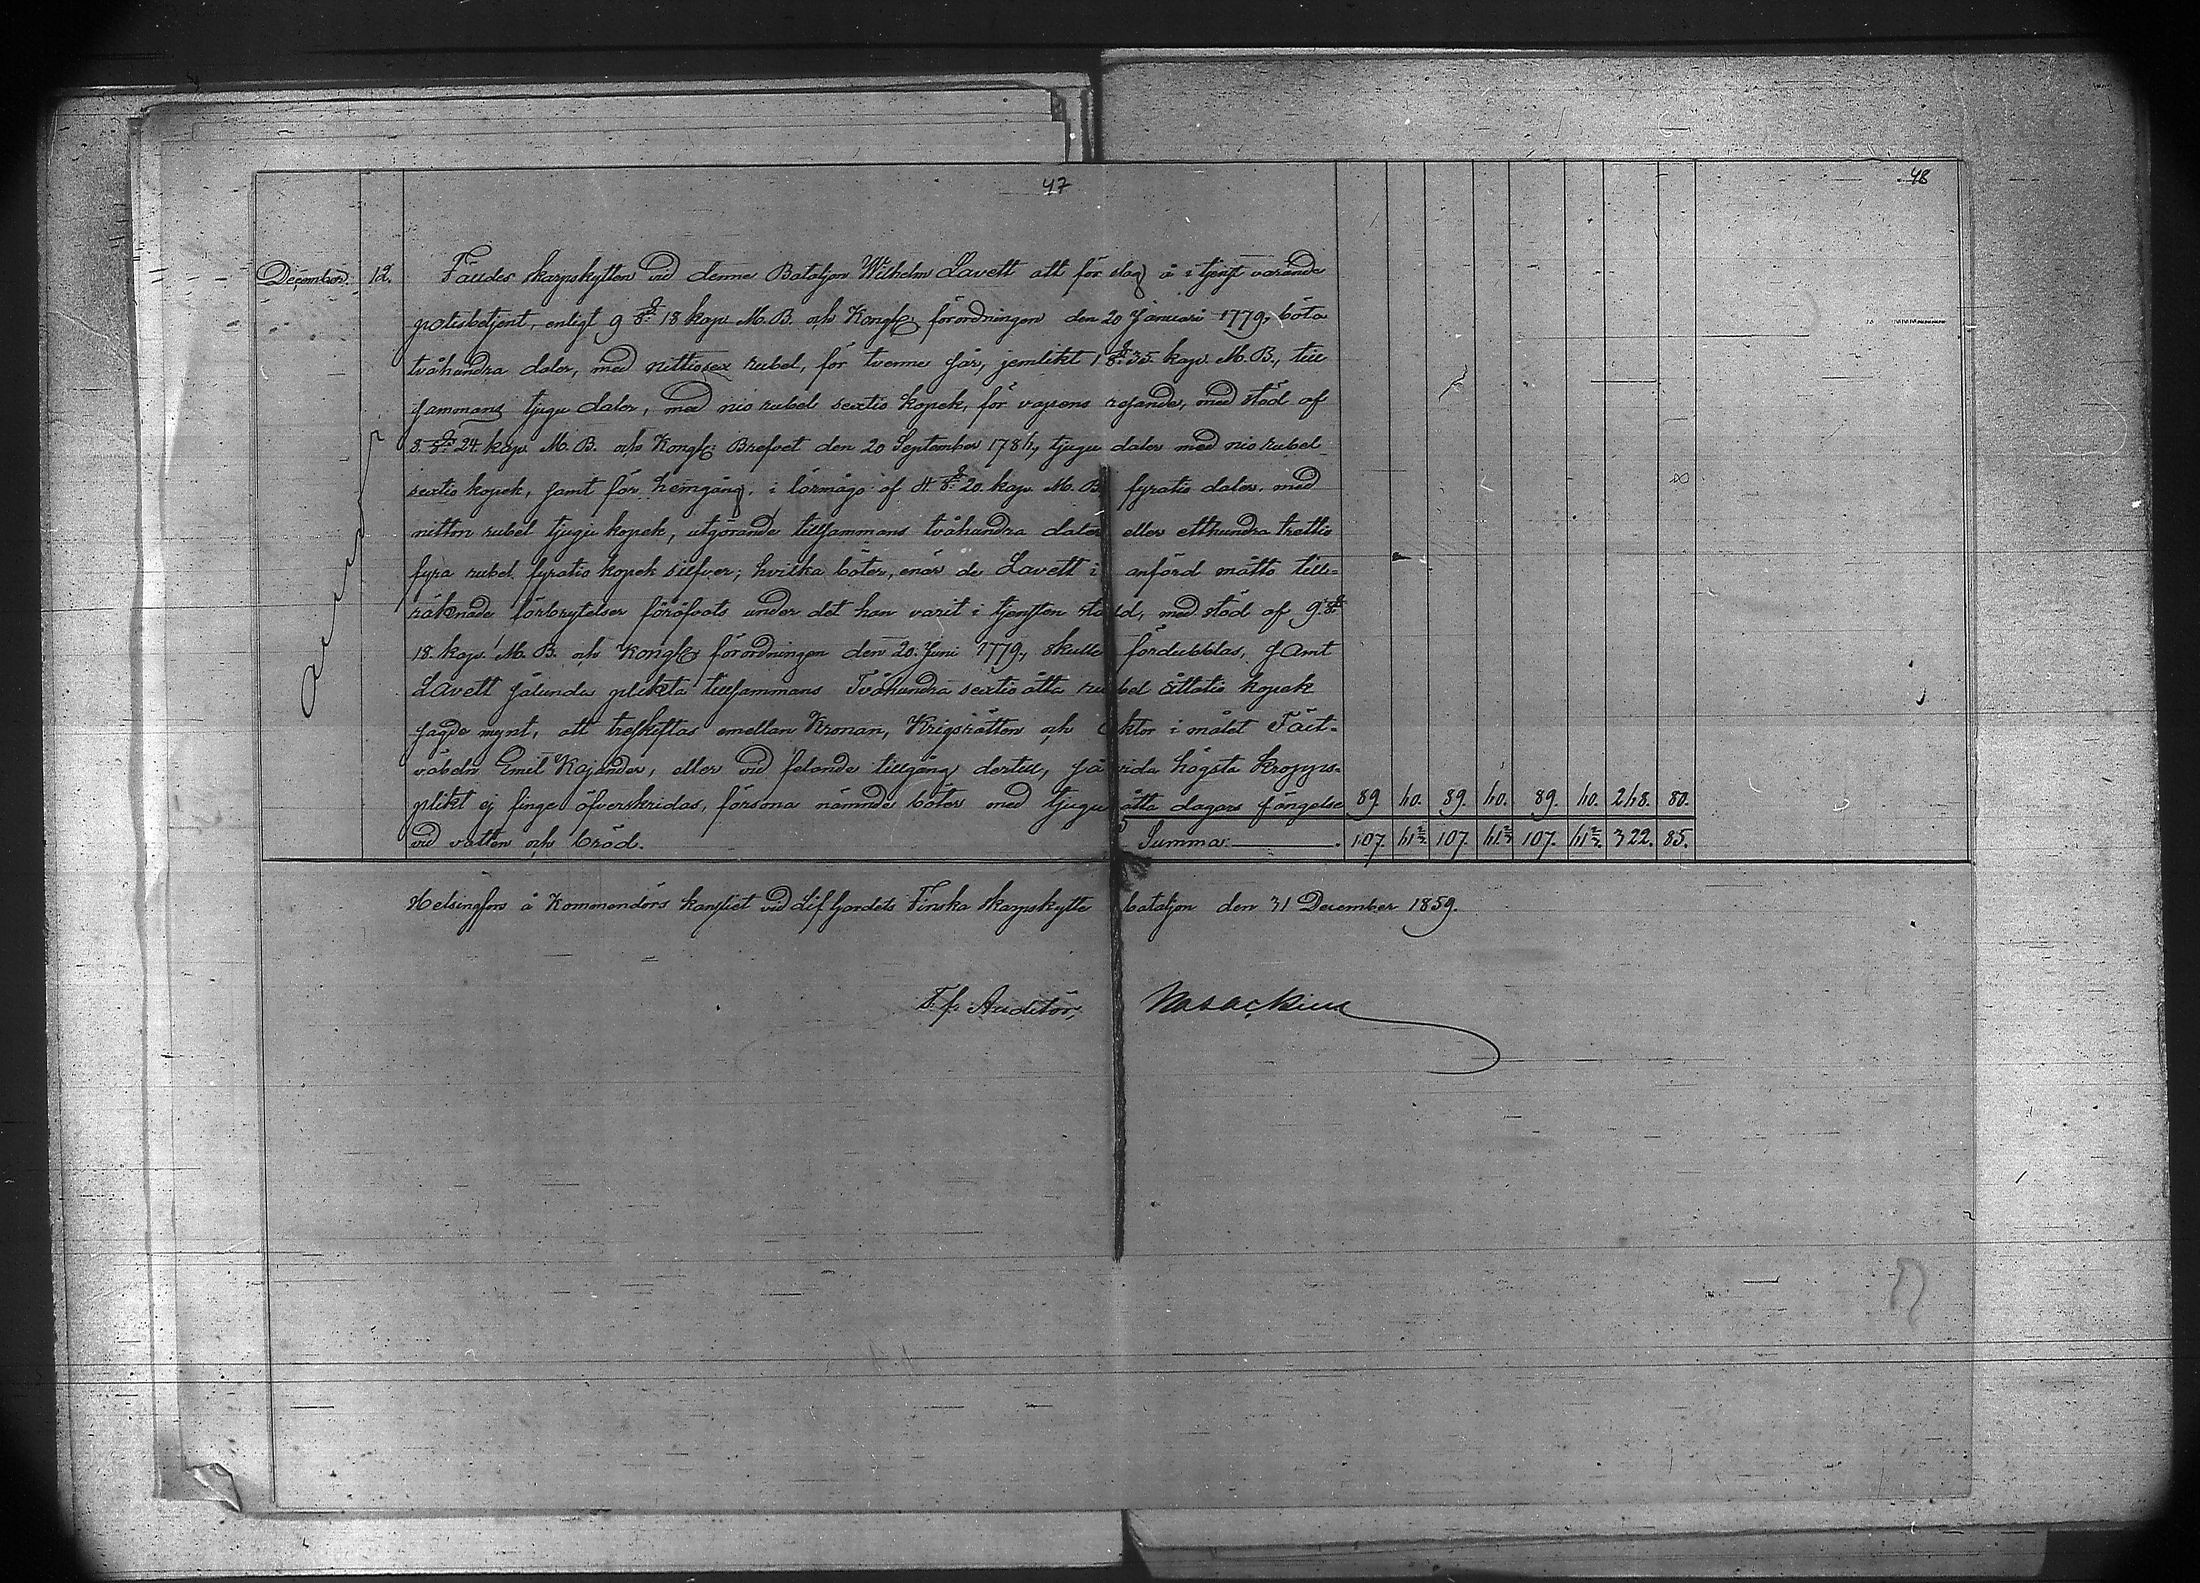 47
48
December. 12. Fäldes skarpskytten vid denne Bataljon Wilhelm Lavett att för slag å i tjenst varande
polisbetjent, enligt 9 §. 18 kap. M.B. och Kongl. förordningen den 20 Januari 1779, böta
tvåhundra daler, med nittiosex rubel, för tvenne sår, jemlikt 1 §. 35. kap. M.B., till
sammans tjugu daler, med nio rubel sextio kopek, för vapens resande, med stöd af
8. §. 24. kap. M.B. och Kongl. Brefvet den 20 September 1784, tjugu daler med nio rubel
sextio kopek, samt för hemgång, i förmågo af 4 §. 20. kap. M.B. fyratio daler, med
nitton rubel tjugu kopek, utgörande tillsammans tvåhundra daler eller etthundra trettio
fyra rubel fyratio kopek silfver; hvilka böter, enär de Lavett i anförd måtto till-
räknade förbrytelser föröfvats under det han varit i tjensten stadd, med stöd af 9. §.
18. kap. M.B. och Kongl. förordningen den 20. Juni 1779, skulle fördubblas, samt
Lavett sålunda plikta tillsammans Tvåhundra sextio åtta rubel åttatio kopek
sagde mynt, att treskiftas emellan Kronan, Krigsrätten och Aktor i målet Fält-
väbeln Emil Kajander, eller vid felande tillgång dertill, så vida högsta kropps-
plikt ej finge öfverskridas, försona nämnde böter med tjugu åtta dagars fängelse 89. 60. 89. 60. 89. 60. 268. 80.
vid vatten och bröd. Summa. 107. 61 2/3. 107. 61 2/3. 107. 61 2/3. 322. 85.
Helsingfors å Kommendörs kansliet vid Lif Gardets Finska Skarpskytte bataljon den 31 December 1859.
T. f. Auditör,